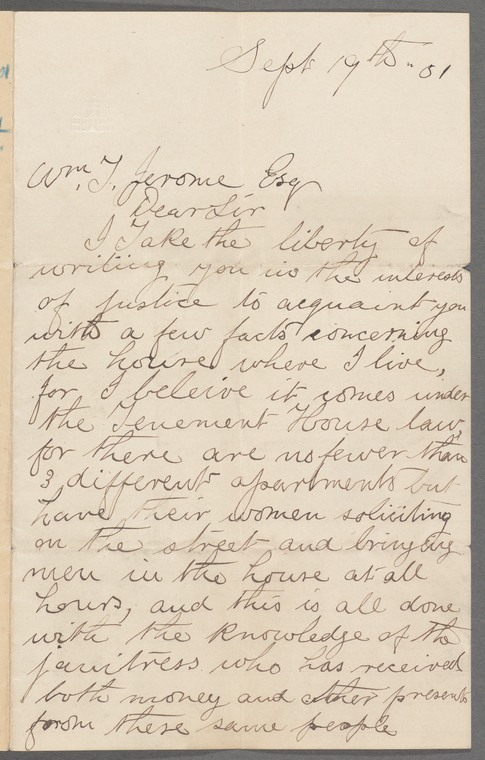 Sept 19th - 01
Wm. T. Jerome Esq
Dear Sir
I Take the liberty of
writing you in the interests
of justice to acquaint you
with a few facts concerning
the house where I live,
for I beleive it comes under
the Tenement House law,
for there are no fewer than
3 different apartments but
have their women soliciting
on the street and bringing
men in the house at all
hours, and this is all done
with the knowledge of the
janitress who has received
both money and other presents
from these same people